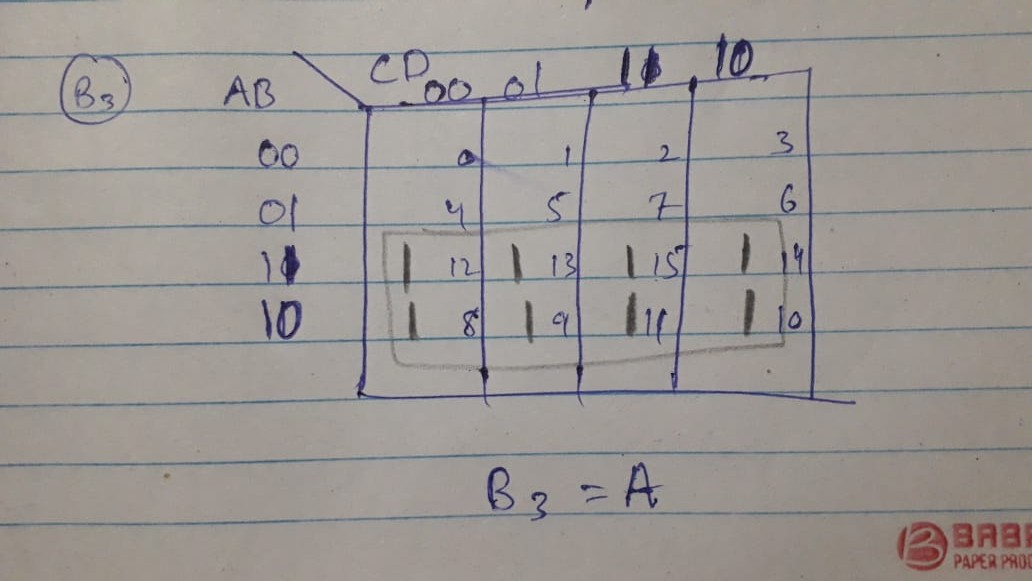 B3 AB CD 00 01 11 10
00 0 1 2 3
01 4 5 7 6
11 1 12 1 13 1 15 1 14
10 1 8 1 9 1 11 1 10
B3 = A
BABE
PAPER PROD